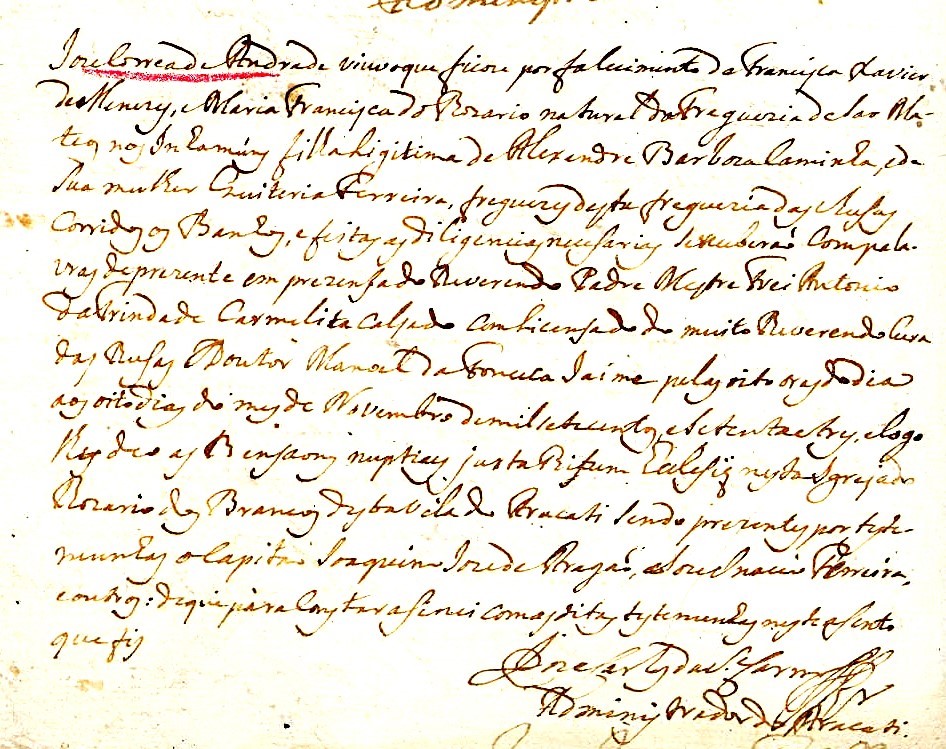 Joze Correa de Andrade viuvo que ficou por falecimento da Francisca Xavier
de Menezes, e Maria Francisca do Rozario natural da Freguezia de Sao Ma-
teos nos Inhamúns filha ligitima de Alexendre Barboza Caminha, e de
Sua mulher Quiteria Ferreira, freguezes desta freguezia das Rusas
Corridos os Banhos, e feitas as diligencias necesarias Se receberaõ Com pala-
vras de prezente em prezensa do Reverendo Padre Mestre Frei Antonio
da Trindade Carmelita Calsado com licensa do do muito Reverendo Cura
das Rusas Doutor Manoel da Fonceca Jaime pelas oito oras do dia
aos oito dias do mes de Novembro de mil setecentos e Setenta e tres, e logo
lhes deo as Bensaons nupciais juxta Ritum Eclesiæ nesta Igreja do
Rozario dos Brancos desta Vila do Aracati Sendo prezentes por teste-
munhas o Capitaõ Joaquim Joze de Aragaõ, e Joze Inacio Ferreira,
e outros: de que para Constar asinei com as ditas testemunhas neste asento
que fis
Joze
Administrador do Aracati.